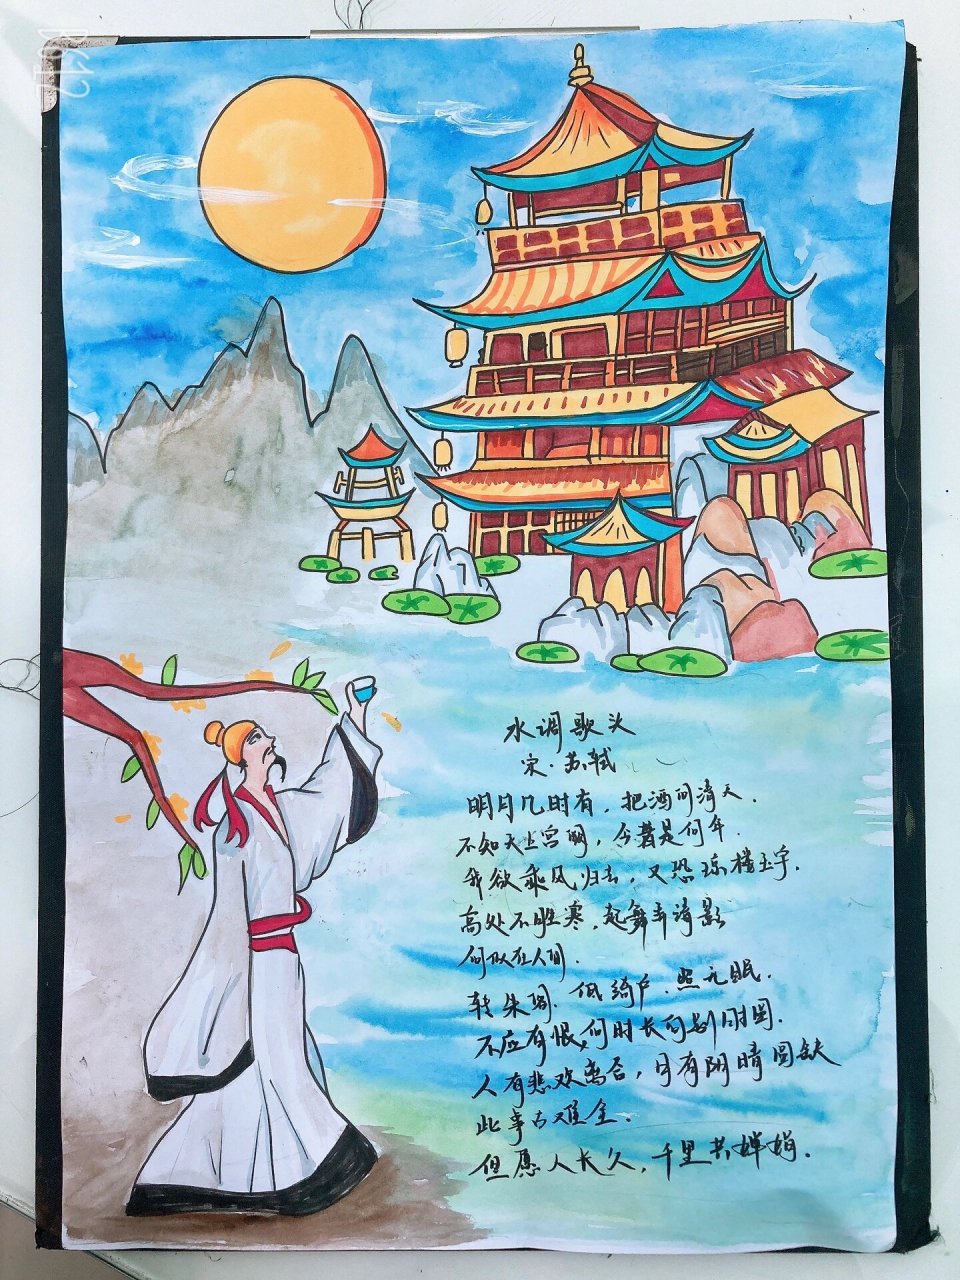 水调歌头
宋·苏轼
明月几时有,把酒问清天.
不知天上宫阙,今昔是何年.
我欲乘风归去,又恐琼楼玉宇.
高处不胜寒,起舞弄清影
何似在人间.
转朱阁.低绮户.照无眠.
不应有恨,何时长向别时圆.
人有悲欢离合,月有阴晴圆缺
此事古难全.
但愿人长久,千里共婵娟.